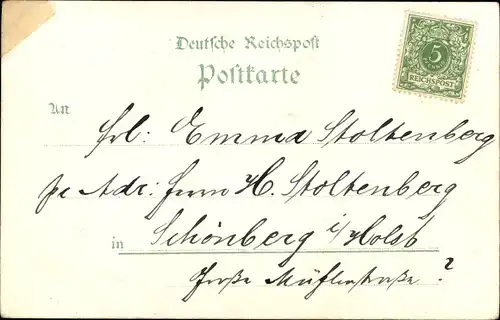 Deutsche Reichspost
5
PFENNIG
REICHSPOST
Postkarte
An
Frl: Emma Stoltenberg
pr Adr: Herrn H. Stoltenberg
in Schönberg i/Holst
Große Mühlenstraße ?